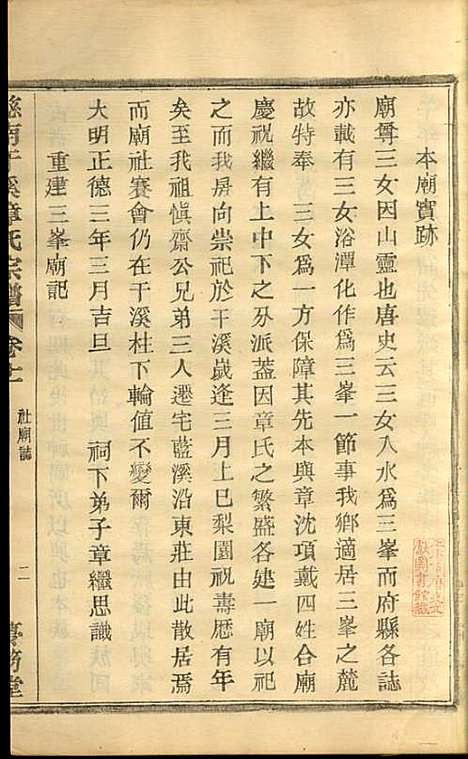 本廟實跡
廟尊三女因山靈也唐史云三女入水爲三峯而府縣各誌
亦載有三女浴潭化作爲三峯一節事我鄉適居三峯之麓
故特奉　三女爲一方保障其先本與章沈項戴四姓合廟
慶祝繼有上中下之分派蓋因章氏之繁盛各建一廟以祀
之而我房向崇祀於干溪歲逢三月上巳梨園祝壽歷有年
矣至我祖愼齋公兄弟三人遷宅藍溪沿東莊由此散居焉
而廟社賽會仍在干溪柱下輪值不變爾
大明正德三年三月吉旦　祠下弟子章繼思識
重建三峯廟記
慈南干溪章氏宗譜
卷十
社廟誌
二